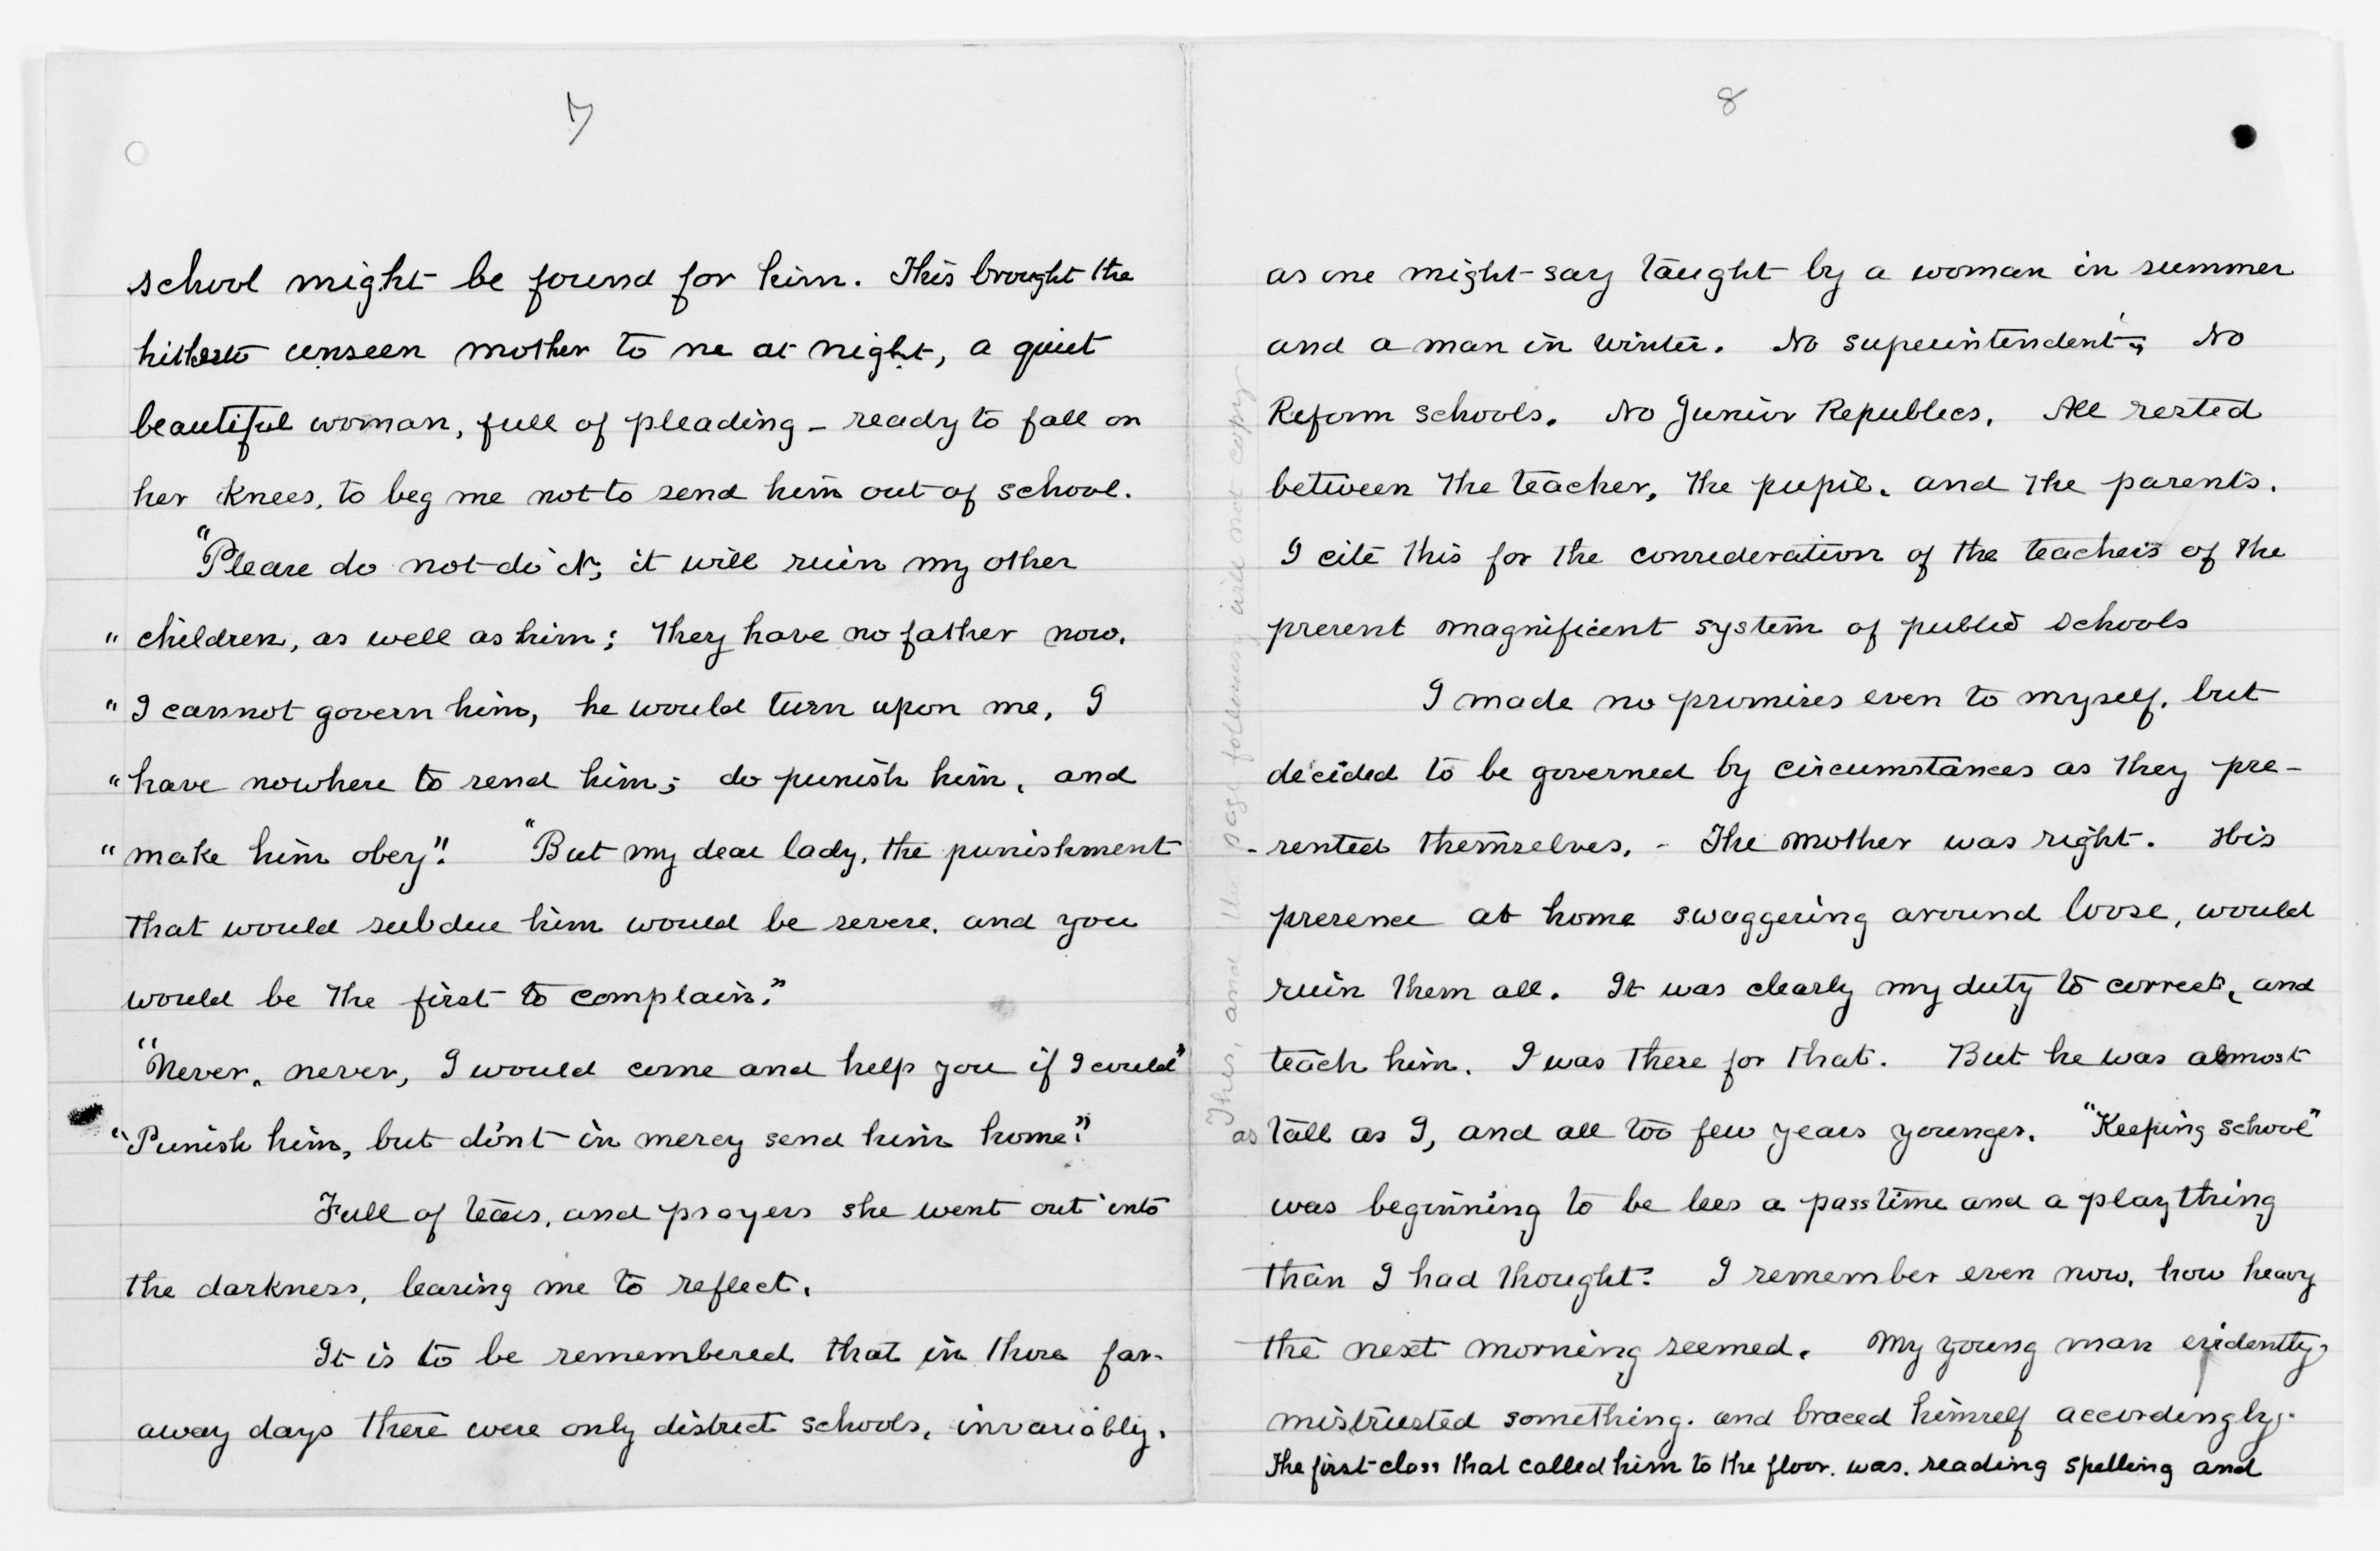 7
school might be found for him. This brought the
hitherto unseen mother to me at night, a quiet
beautiful woman, full of pleading - ready to fall on
her knees, to beg me not to send him out of school.
"Please do not do it, it will ruin my other
" children, as well as him; they have no father now.
" I cannot govern him, he would turn upon me, I
" have nowhere to send him; do punish him, and
" make him obey". "But my dear lady, the punishment
that would subdue him would be severe, and you
would be the first to complain."
"Never, never, I would come and help you if I could"
"Punish him, but don't in mercy send him home".
Full of tears, and prayers she went out into
the darkness, leaving me to reflect.
It is to be remembered that in those far-
away days there were only district schools, invariably,
8
as one might say taught by a woman in summer
and a man in winter. No superintendent, No
Reform schools. No Junior Republics. All rested
between the teacher, the pupil, and the parents.
I cite this for the consideration of the teachers of the
present magnificent system of public schools
I made no promises even to myself, but
decided to be governed by circumstances as they pre-
-sented themselves. - The mother was right. His
presence at home swaggering around loose, would
ruin them all. It was clearly my duty to correct, and
teach him. I was there for that. But he was almost
as tall as I, and all too few years younger. "Keeping school"
was beginning to be less a passtime and a plaything
than I had thought. I remember even now, how heavy
the next morning seemed. My young man evidently
mistrusted something. and braced himself accordingly.
The first class that called him to the floor. was. reading spelling and
This, and the page following will not copy